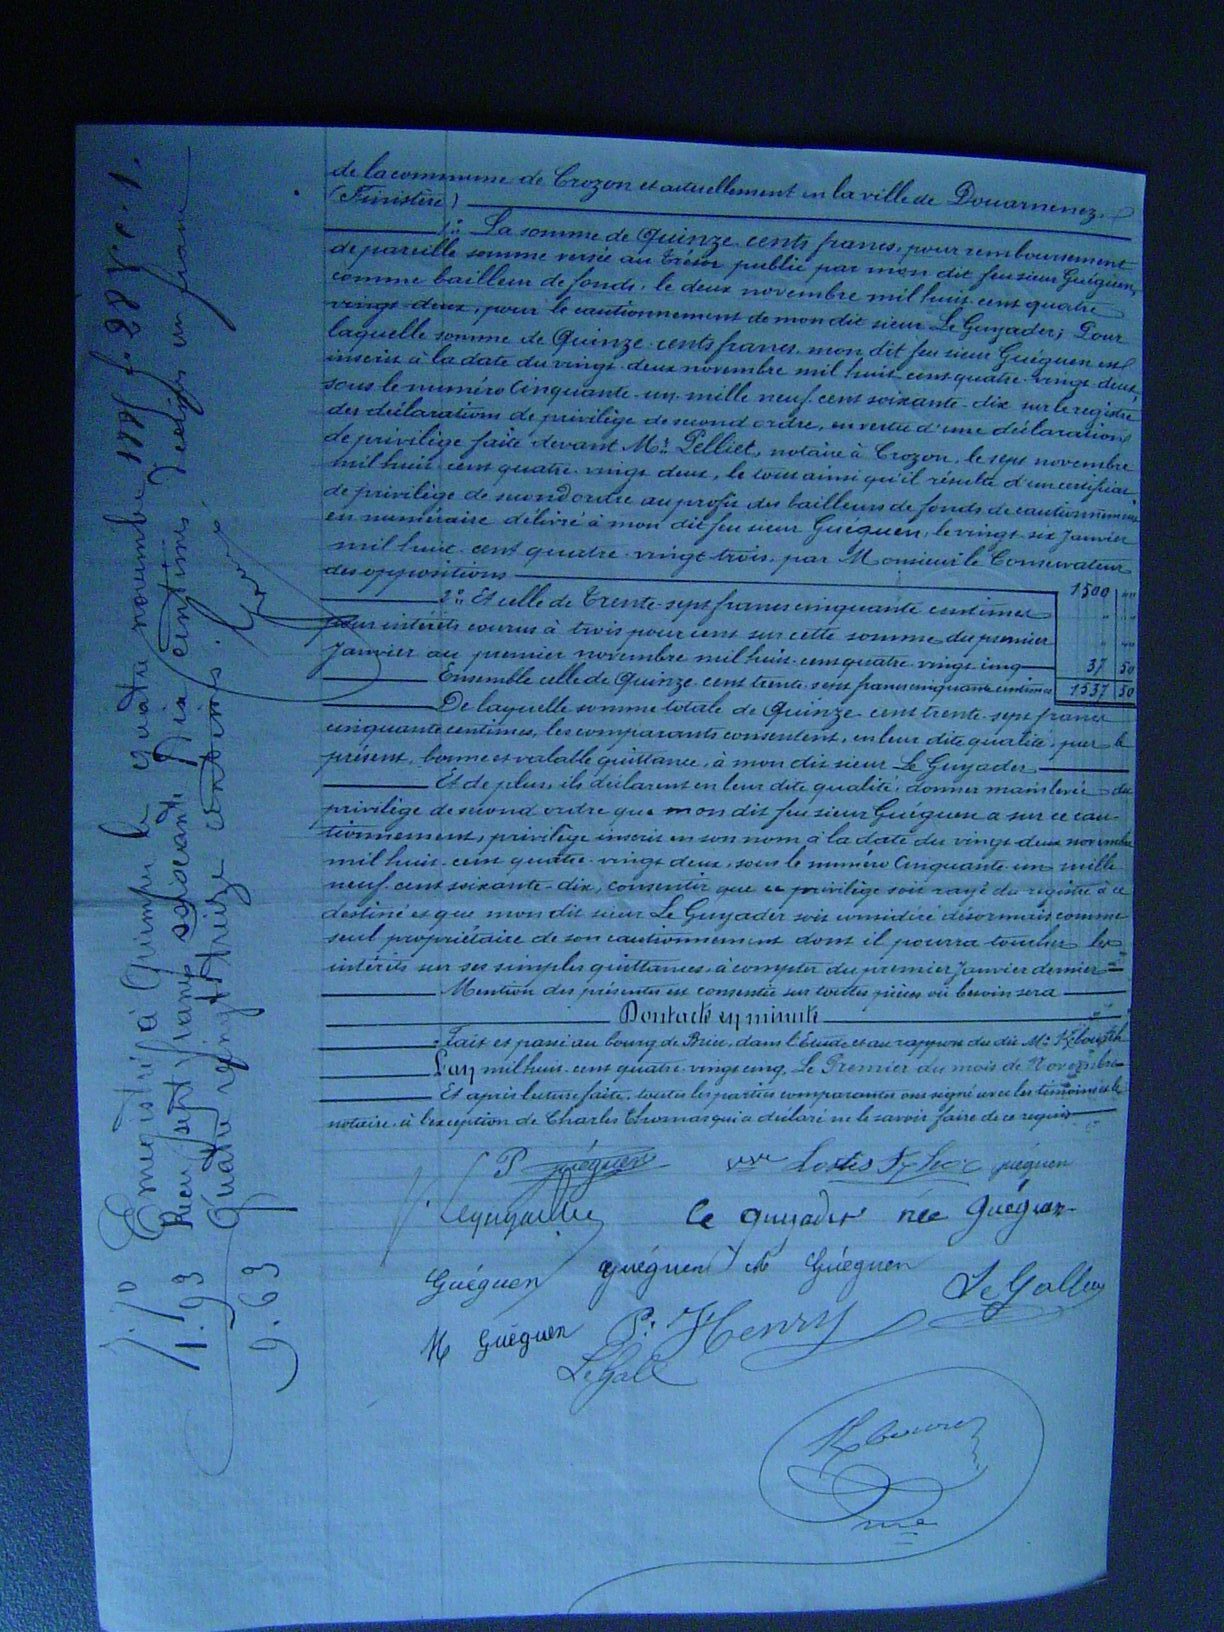 de la commune de Crozon et actuellement en la ville de Douarnenez
(Finistère)
1º: La somme de Quinze cents francs, pour remboursement
de pareille somme versée au trésor public par mon dit feu sieur Guéguen,
comme bailleur de fonds, le deux novembre mil huit cent quatre
vingt deux, pour le cautionnement de mon dit sieur Le Guyader; Pour
laquelle somme de Quinze cents francs, mon dit feu sieur Guéguen est
inscrit à la date du vingt deux novembre mil huit cent quatre vingt deux,
sous le numéro Cinquante un mille neuf cent soixante dix sur le registre
des déclarations de privilège de second ordre, en vertu d'une déclaration
de privilège faite devant Mr: Pelliet, notaire à Crozon, le sept novembre
mil huit cent quatre vingt deux, le tout ainsi qu'il résulte d'un certificat
de privilège de second ordre au profit des bailleurs de fonds de cautionnement
en numéraire délivré à mon dit feu sieur Guéguen, le vingt six Janvier
mil huit cent quatre vingt trois, par Monsieur le Conservateur
des oppositions 1500 " "
2º: Et celle de Trente sept francs cinquante centimes
pour intérêts courus à trois pour cent sur cette somme du premier
Janvier au premier novembre mil huit cent quatre vingt cinq 37 50
Ensemble celle de Quinze cent trente sept francs cinquante centimes 1537 50
De laquelle somme totale de Quinze cent trente sept francs
cinquante centimes, les comparants consentent, en leur dite qualité, par le
présent, bonne et valable quittance, à mon dit sieur Le Guyader
Et de plus, ils déclarent en leur dite qualité, donner mainlevée du
privilège de second ordre que mon dit feu sieur Guéguen a sur ce cau-
tionnement, privilège inscrit en son nom à la date du vingt deux novembre
mil huit cent quatre vingt deux, sous le numéro Cinquante un mille
neuf cent soixante dix, consentir que ce privilège soit rayé du registre à ce
destiné et que mon dit sieur Le Guyader soit considéré désormais comme
seul propriétaire de son cautionnement dont il pourra toucher les
intérêts sur ses simples quittances, à compter du premier Janvier dernier
Mention des présentes est consentie sur toutes pièces où besoin sera
Dont acte en minute
Fait et passé au bourg de Briec, dans l'Etude et au rapport du dit Mr:
L'an mil huit cent quatre vingt cinq, Le Premier du mois de Novembre
Et après lecture faite, toutes les parties comparantes ont signé avec les témoins et le
notaire, à l'exception de Charles Thomas qui a déclaré ne le savoir faire de ce requis
P Guéguen vve guéguen
Leguyader Le guyader née Guéguen
Guéguen guéguen née Guéguen Le Gallou
M Guéguen P: Henry
Le Gall
Enregistré à Quimper le quatre novembre 1885 fo 28 Vo c. 1.
Reçu sept francs soixante dix centimes. Décimes un franc
quatre vingt treize centimes.
7.70
1.93
9.63